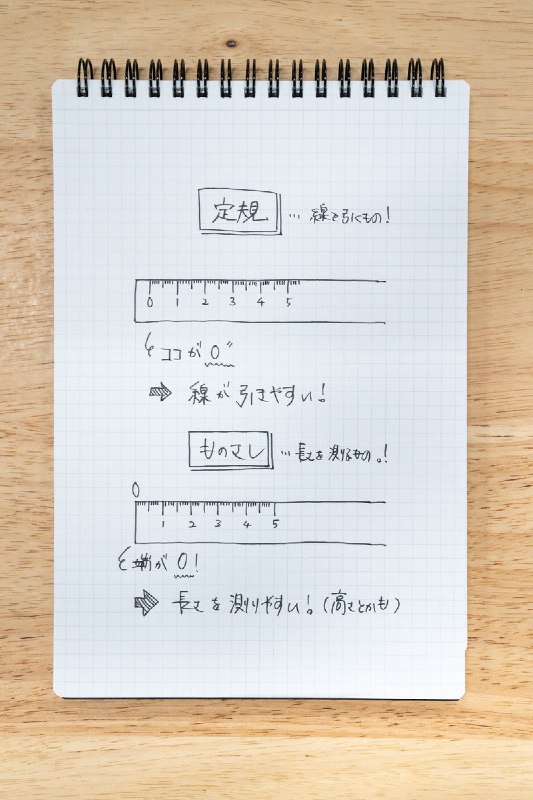 定規 … 線を引くもの!
0 1 2 3 4 5
ココが0"
⇒ 線が引きやすい!
ものさし … 長さを測るもの。!
0
1 2 3 4 5
端が0!
⇒ 長さを測りやすい!(高さとかも)